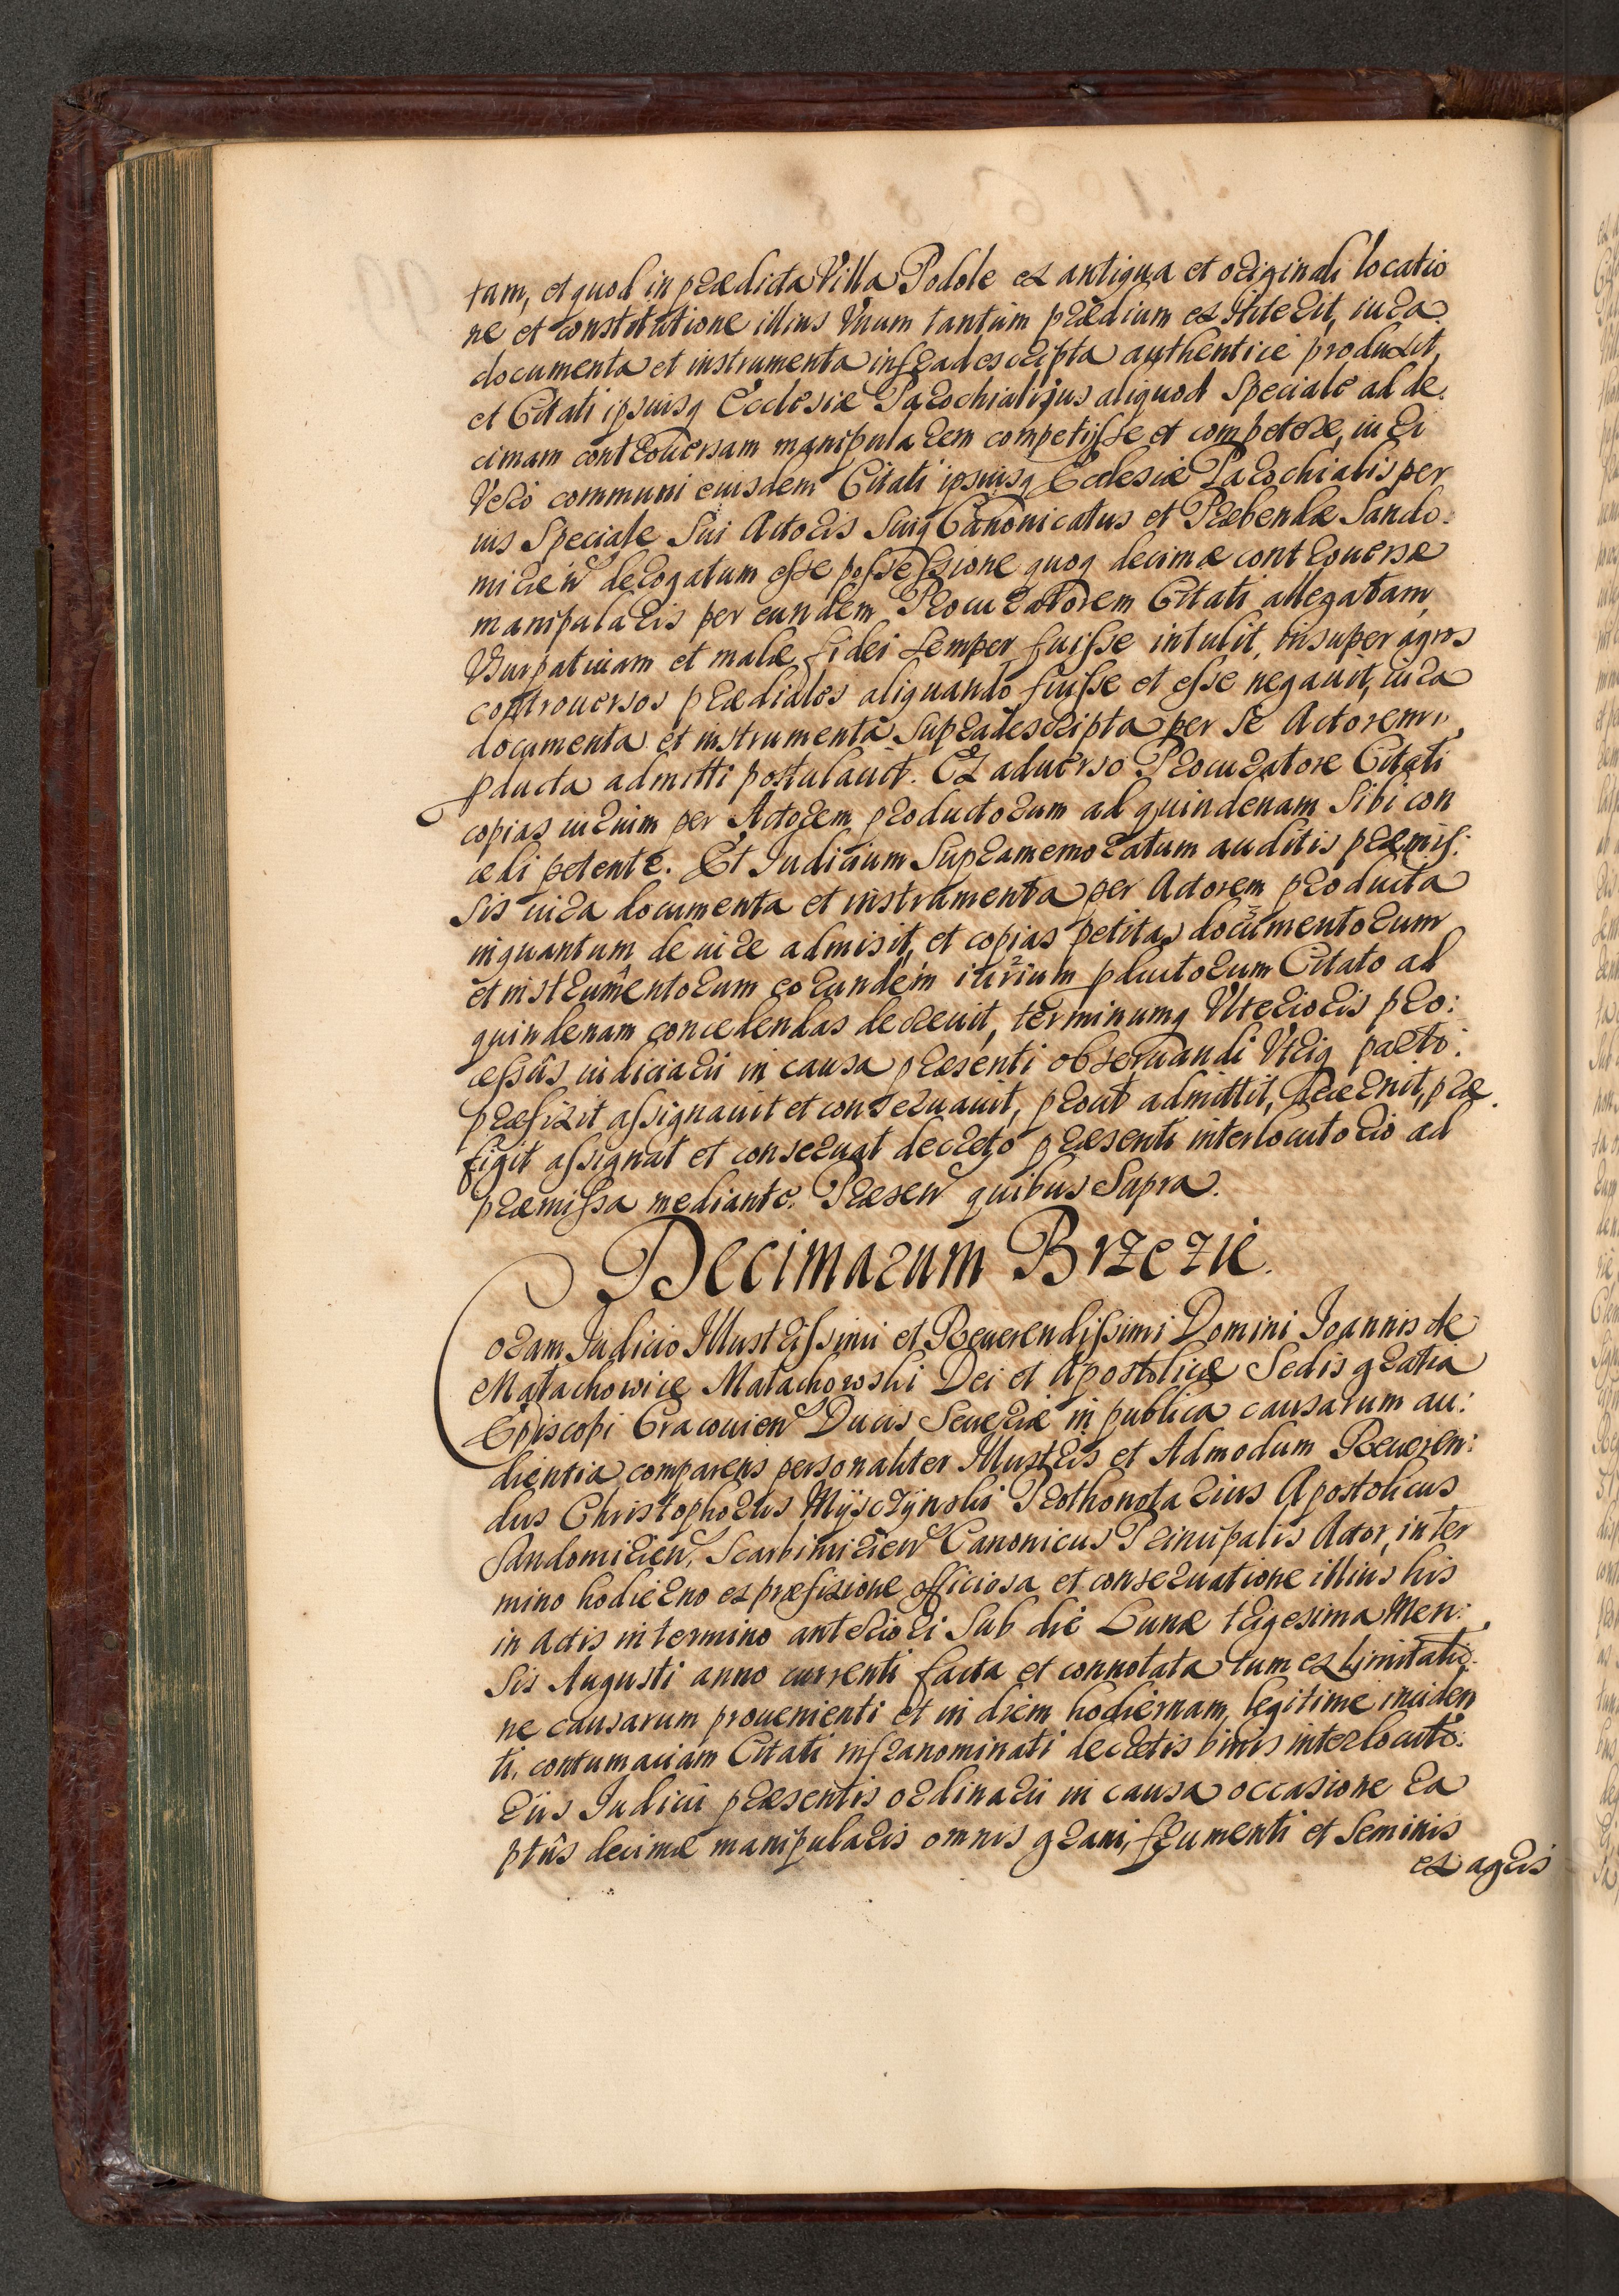 tam, et quod in prædicta Villa Podole ex antiqua et originali locatio
ne et constitutione illius Vnum tantùm prædium exstiterit, iura
documenta et instrumenta infradescripta authenticè produxit,
et Citati ipsiusq Ecclesiæ Parochialis jus aliquod Speciale ad de
cimam controuersam manipularem competijsse et competere, iuri
Verò communi eiusdem Citati ipsiusq Ecclesiæ Parochialis per
ius Speciale Sui Actoris Suiq Canonicatus et Præbendæ Sando:
mirien derogatum esse possessione quoq decimæ controuersæ
manipularis per eundem Procuratorem Citati allegatam,
Vsurpatiuam et malæ fidei semper fuisse intulit, insuper agros
controuersos prædiales aliquando fuisse et esse negauit, iura
documenta et instrumenta Supradescripta per Se Actorem
pducta admitti postulauit. Ex aduerso Procuratore Citati
copias iurium per Actorem productorum ad quindenam Sibi con
cedi petente. Et Iudicium Supramemoratum auditis præmis:
sis iura documenta et instrumenta per Actorem producta
inquantum de iure admisit, et copias petitas documentorum
et instrumentorum eorundem iurium pductorum Citato ad
quindenam concedendas decreuit, terminumq Vlterioris pro:
cessûs iudiciarii in causa præsenti obseruandi Vtriq parti
præfixit assignauit et conseruauit, prout admittit, decernit, præ
figit assignat et conseruat decreto præsenti interlocutorio ad
præmissa mediante. Præsen quibus Supra.
Decimarum Brzezie.
Coram Iudicio Illustrissimi et Reuerendissimi Domini Ioannis de
Małachowice Małachowski Dei et Apostolicæ Sedis gratia
Episcopi Cracouien Ducis Seueriæ in publica causarum au:
dientia comparens personaliter Illustris et Admodum Reueren:
dus Christophorus Mijsczÿnski Prothonotarius Apostolicus
Sandomirien, Scarbimirien Canonicus Principalis Actor, in ter
mino hodierno ex præfixione officiosa et conseruatione illius his
in Actis in termino anteriori Sub die Lunæ trigesima Men:
sis Augusti anno currenti facta et connotata tum ex limitatio
ne causarum prouenienti et in diem hodiernam, legitimè inciden
ti, contumaciam Citati infranominati decretis binis interlocuto:
riis Iudicii præsentis ordinarii in causa occasione ra
ptûs decimæ manipularis omnis grani, frumenti et Seminis
ex agris